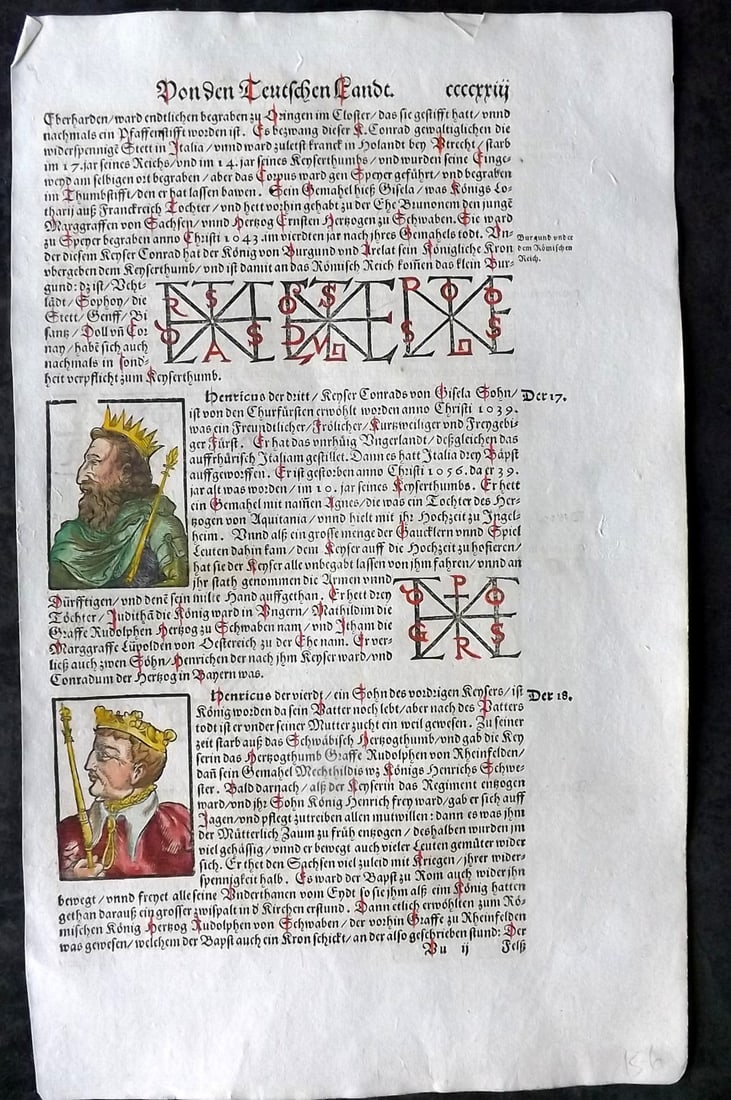 Von den Teutschen Landt. ccccxxiij
Eberharden/ward endtlichen begraben zu Oringen im Closter/das sie gestifft hatt/vnnd
nachmals ein Pfaffenstifft worden ist. Es bezwang dieser K.Conrad gewaltiglichen die
widerspennige Stett in Italia/vnnd ward zuletst kranck in Holandt bey Vtrecht/starb
im 17.jar seines Reichs/vnd im 14.jar seines Keyserthumbs/vnd wurden seine Einge-
weyd am selbigen ort begraben/aber das Corpus ward gen Speyer geführt/vnd begraben
im Thumbstifft/den er hat lassen bawen. Sein Gemahel hieß Gisela/was Königs Lo-
tharij auß Franckreich Tochter/vnd hett vorhin gehabt zu der Ehe Brunonem den jungē
Marggraffen von Sachsen/vnnd Hertzog Ernsten Hertzogen zu Schwaben. Sie ward
zu Speyer begraben anno Christi 1043.im vierdten jar nach jhres Gemahels todt. Vn-
der diesem Keyser Conrad hat der König von Burgund vnd Arelat sein Königliche Kron
vbergeben dem Keyserthumb/vnd ist damit an das Römisch Reich kom̄en das klein Bur-
Burgund vnder
dem Römischen
Reich.
gund: dz ist/Vcht-
lädt/Sophoy/die
Stett/Genff/Bi
santz/Doll vn̄ Cor
nay/habē sich auch
nachmals in sond-
heit verpflicht zum Keyserthumb.
Henricus der dritt/Keyser Conrads von Gisela Sohn/
Der 17.
ist von den Churfürsten erwöhlt worden anno Christi 1039.
was ein Freundtlicher/Frölicher/Kurtzweiliger vnd Freygebi-
ger Fürst. Er hat das vnrhüig Vngerlandt/deßgleichen das
auffrhürisch Italiam gestillet. Dann es hatt Italia drey Bäpst
auffgeworffen. Er ist gestorben anno Christi 1056.da er 39.
jar alt was worden/im 10.jar seines Keyserthumbs. Er hett
ein Gemahel mit nam̄en Agnes/die was ein Tochter des Her-
tzogen von Aquitania/vnnd hielt mit jhr Hochzeit zu Ingel-
heim. Vnnd alß ein grosse menge der Gaucklern vnnd Spiel
Leuten dahin kam/dem Keyser auff die Hochzeit zu hofieren/
hat sie der Keyser alle vnbegabt lassen von jhm fahren/vnnd an
jhr stath genommen die Armen vnnd
Dürfftigen/vnd denē sein milte Hand auffgethan. Er hett drey
Töchter/Judithā die König ward in Vngern/Mathildim die
Graffe Rudolphen Hertzog zu Schwaben nam/vnd Itham die
Marggraffe Lüpolden von Oestereich zu der Ehe nam. Er ver-
ließ auch zwen Söhn/Henrichen der nach jhm Keyser ward/vnd
Conradum der Hertzog in Bayern was.
Henricus der vierdt/ein Sohn des vordrigen Keysers/ist
Der 18.
König worden da sein Vatter noch lebt/aber nach des Vatters
todt ist er vnder seiner Mutter zucht ein weil gewesen. Zu seiner
zeit starb auß das Schwäbisch Hertzogthumb/vnd gab die Key
serin das Hertzogthumb Graffe Rudolphen von Rheinfelden/
dan̄ sein Gemahel Mechthildis wz Königs Henrichs Schwe-
ster. Bald darnach/alß der Keyserin das Regiment entzogen
ward/vnd jhr Sohn König Henrich frey ward/gab er sich auff
Jagen/vnd pflegt zutreiben allen mutwillen: dann es was jhm
der Mütterlich Zaum zu früh entzogen/deshalben wurden jm
viel gehässig/vnnd er bewegt auch vieler Leuten gemüter wider
sich. Er thet den Sachsen viel zu leid mit Kriegen/jhrer wider-
spennigkeit halb. Es ward der Bapst zu Rom auch wider jhn
bewegt/vnnd freyet alle seine Vnderthanen vom Eydt so sie jhm alß ein König hatten
gethan darauß ein grosser zwispalt in d' Kirchen erstund. Dann etlich erwöhlten zum Rö-
mischen König Hertzog Rudolphen von Schwaben/der vorhin Graffe zu Rheinfelden
was gewesen/welchem der Bapst auch ein Kron schickt/an der also geschrieben stund: Der
Vu ij Felß